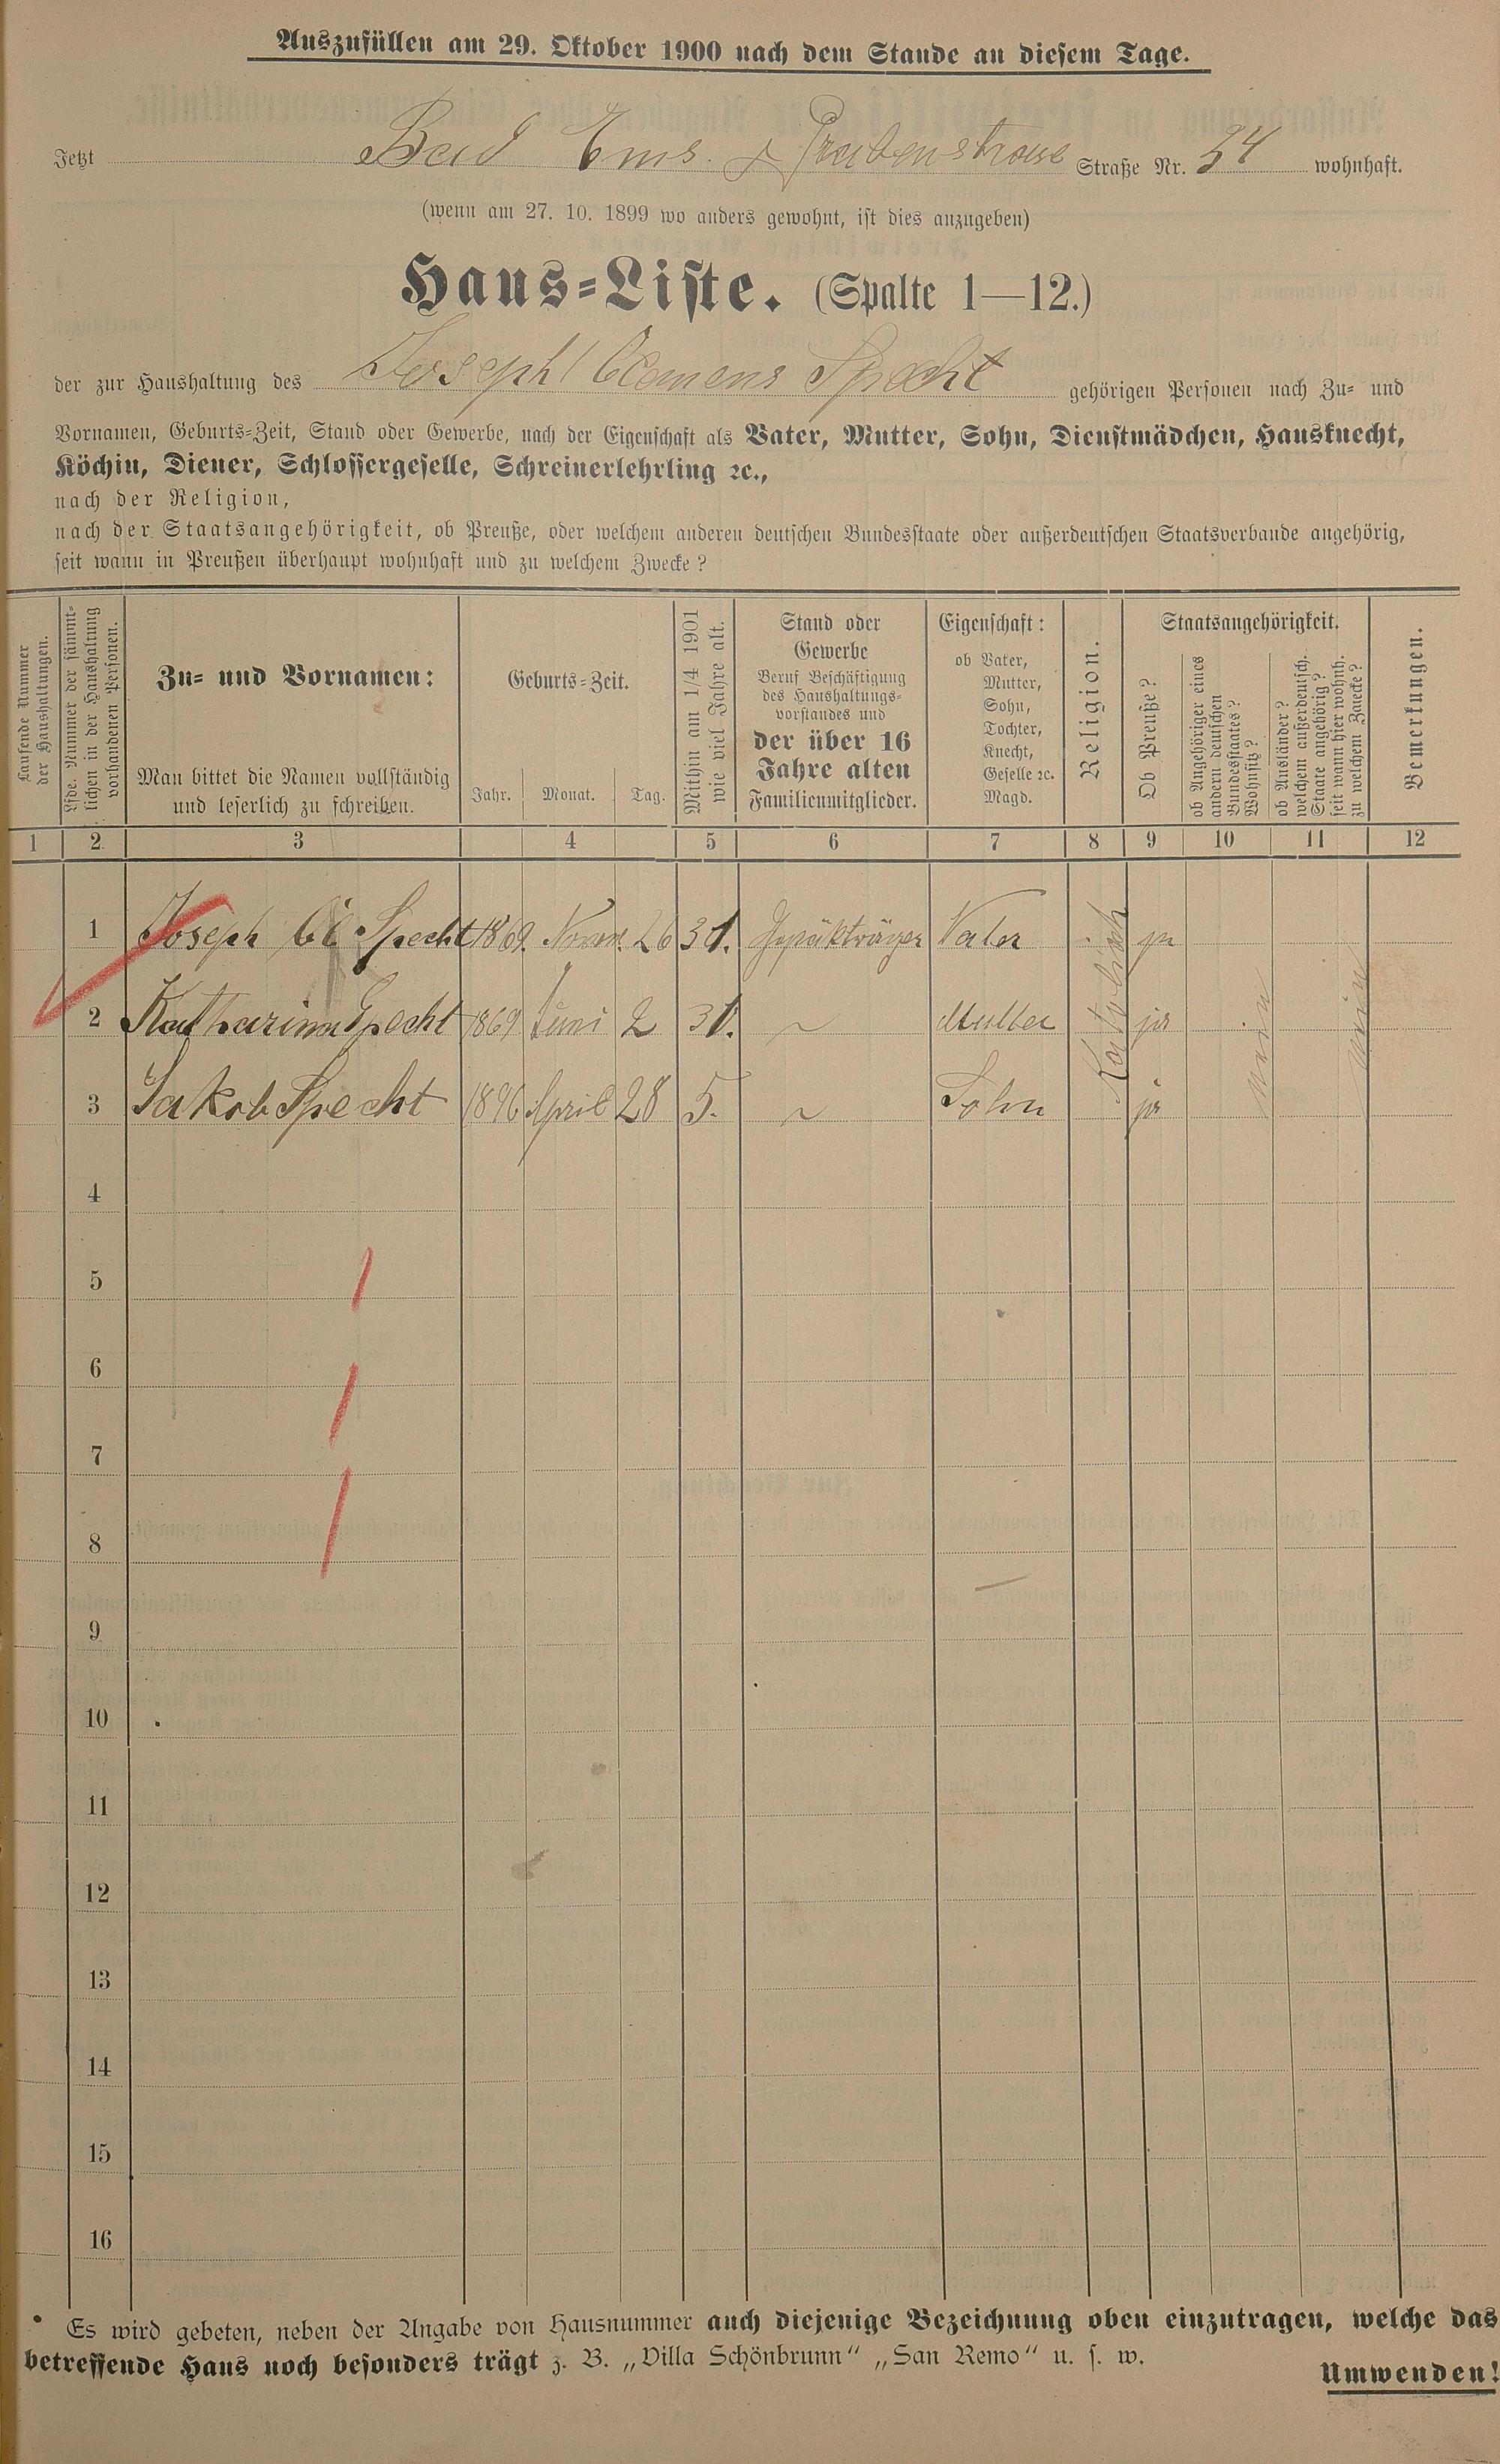 Auszufüllen am 29. Oktober 1900 nach dem Stande an diesem Tage.
Jetzt Bad Ems Straße Nr. 34 wohnhaft.
(wenn am 27. 10. 1899 wo anders gewohnt, ist dies anzugeben)
Haus-Liste. (Spalte 1—12.)
der zur Haushaltung des Joseph Clemens Specht gehörigen Personen nach Zu- und
Vornamen, Geburts-Zeit, Stand oder Gewerbe, nach der Eigenschaft als Vater, Mutter, Sohn, Dienstmädchen, Hausknecht,
Köchin, Diener, Schlossergeselle, Schreinerlehrling ꝛc.,
nach der Religion,
nach der Staatsangehörigkeit, ob Preuße, oder welchem anderen deutschen Bundesstaate oder außerdeutschen Staatsverbande angehörig,
seit wann in Preußen überhaupt wohnhaft und zu welchem Zwecke?
Laufende Nummer
der Haushaltungen.
Lfde. Nummer der sämmt-
lichen in der Haushaltung
vorhandenen Personen.
Zu- und Vornamen:
Man bittet die Namen vollständig
und leserlich zu schreiben.
Geburts-Zeit.
Jahr. Monat. Tag.
Mithin am 1/4 1901
wie viel Jahre alt.
Stand oder
Gewerbe
Beruf Beschäftigung
des Haushaltungs-
vorstandes und
der über 16
Jahre alten
Familienmitglieder.
Eigenschaft:
ob Vater,
Mutter,
Sohn,
Tochter,
Knecht,
Geselle ꝛc.
Magd.
Religion.
Staatsangehörigkeit.
Ob Preuße?
ob Angehöriger eines
andern deutschen
Bundesstaates?
Wohnsitz?
ob Ausländer?
welchem außerdeutsch.
Staate angehörig?
seit wann hier wohnh.
zu welchem Zwecke?
Bemerkungen.
1 2 3 4 5 6 7 8 9 10 11 12
1 Joseph Cl Specht 1869. Novem. 26 31. Gepäkträger Vater Katholisch ja nein nein
2 Katharina Specht 1869 Juni 2 31. ~ Mutter ja
3 Jakob Specht 1896 April 28 5. ~ Sohn ja
4
5
6
7
8
9
10
11
12
13
14
15
16
Es wird gebeten, neben der Angabe von Hausnummer auch diejenige Bezeichnung oben einzutragen, welche das
betreffende Haus noch besonders trägt z. B. „Villa Schönbrunn“ „San Remo“ u. s. w.
Umwenden!